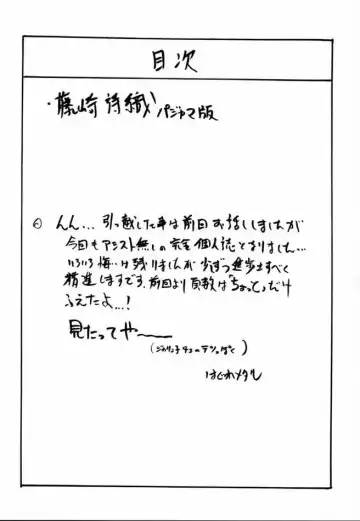 目次
・藤崎詩織 パジャマ版
んん…引っ越しした事は前回お話ししましたが
今回もアシスト無しの完全個人誌となりました…
いろいろ悔いは残りましたが少しずつ進歩すべく
精進しますです。前回より頁数は「ちょっと」だけ
ふえたよ…!
見たってや〜
(ジャリン子チエのテツっぽく)
はぐれメタル